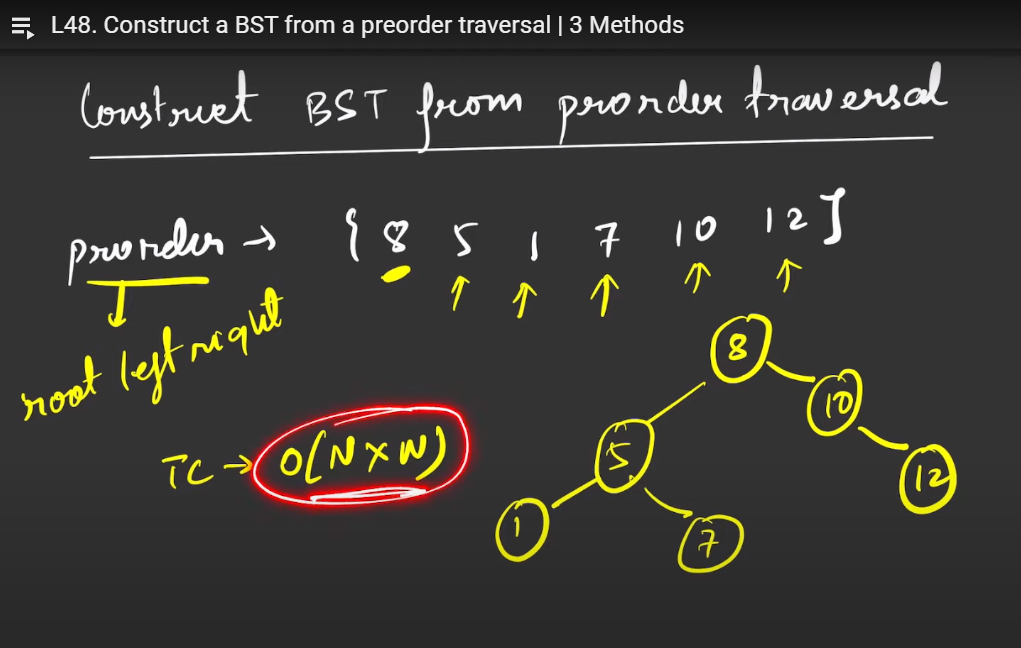 L48. Construct a BST from a preorder traversal | 3 Methods
Construct BST from prorder traversal
prorder → { 8 5 1 7 10 12 }
root left right
TC → O(N x N)
8
10
5
12
1
7